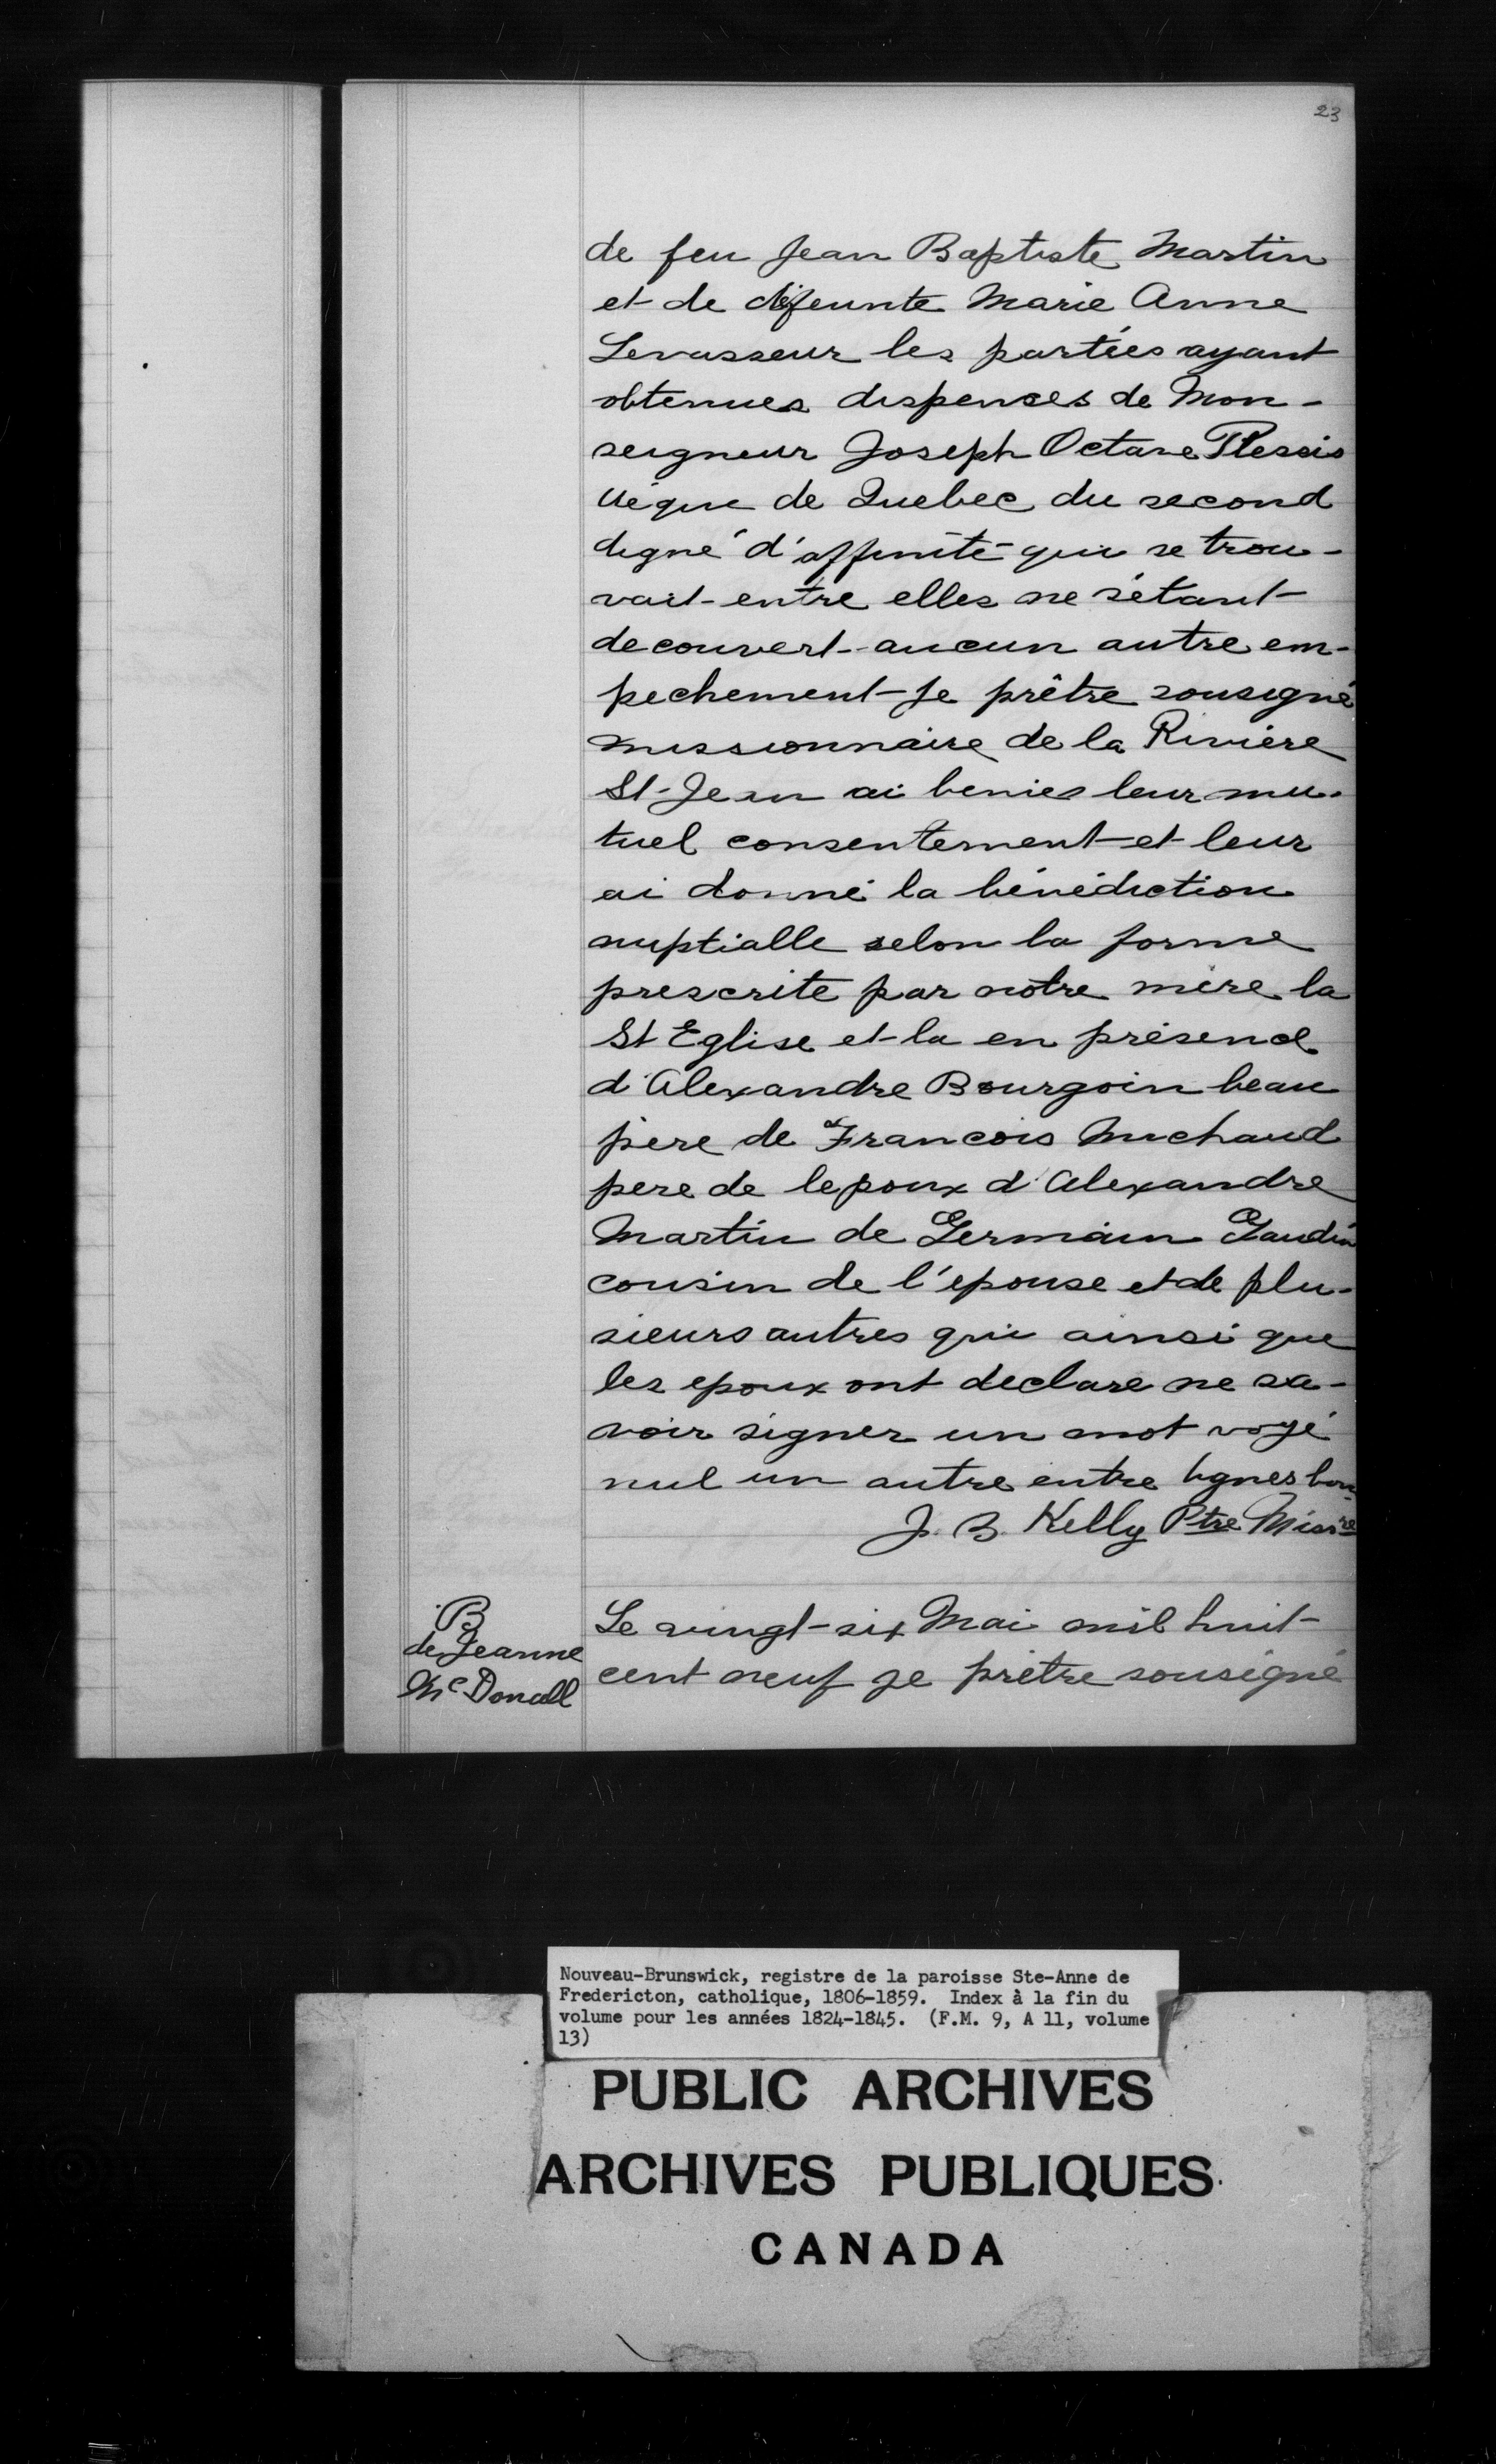 23
de feu Jean Baptiste Martin
et de défeunte Marie Anne
Levasseur les parties ayant
obtenues dispenses de Mon-
seigneur Joseph Octave Plessis
vêque de Quebec du second
degné d'affinité qui se trou-
vait entre elles ne s'étant
decouvert aucun autre em-
pechement je prêtre sousigné
missionnaire de la Rivière
St-Jean ai benies leur mu-
tuel consentement et leur
ai donné la bénédiction
nuptialle selon la forme
prescrite par notre mère la
St Eglise et la en présence
d'Alexandre Bourgoin beau
père de Francois Michaud
pere de lepoux d'Alexandre
Martin de Germain Gaudin
cousin de l'epouse et de plu-
sieurs autres qui ainsi que
les epoux ont declare ne sa-
voir signer un mot
nul un autre entre lignes bon
J. B. Kelly Ptre Missre
B
de Jeanne
McDonall
Le vingt-six Mai mil huit
cent neuf je prêtre sousigné
Nouveau-Brunswick, registre de la paroisse Ste-Anne de
Fredericton, catholique, 1806-1859. Index à la fin du
volume pour les années 1824-1845. (F.M. 9, A 11, volume
13)
PUBLIC ARCHIVES
ARCHIVES PUBLIQUES
CANADA